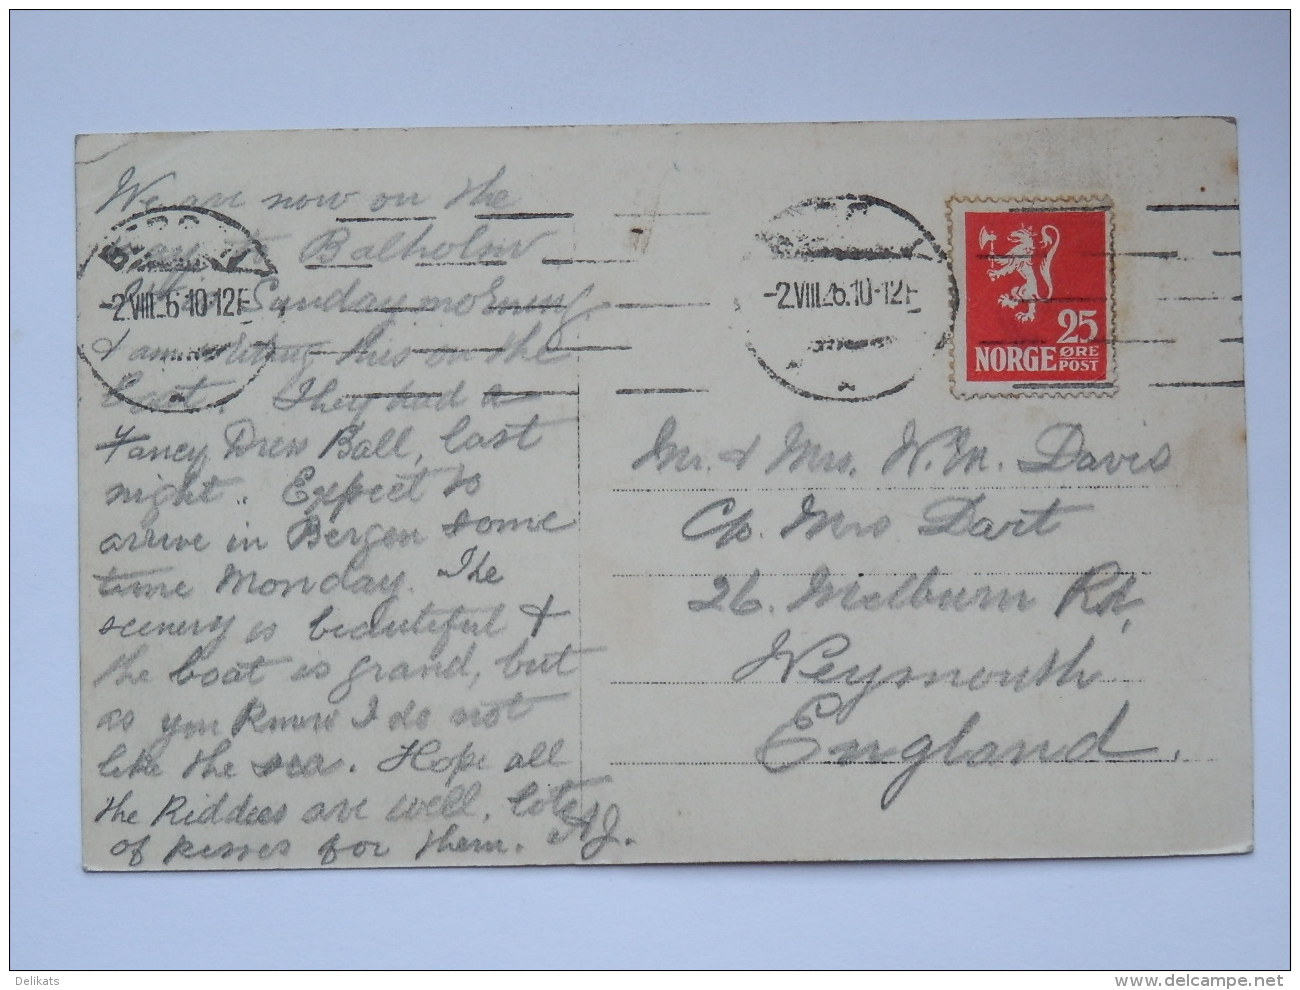 We are now on the
way to Balholm
Sunday morning
& am writing this on the
boat. They had a
Fancy Dress Ball, last
night. Expect to
arrive in Bergen some
time Monday. The
scenery is beautiful &
the boat is grand, but
as you know I do not
like the sea. Hope all
the Kiddees are well, lots
of kisses for them. AJ.
-2.VIII.26.10-12F
-2.VIII.26.10-12F
25
NORGE ØRE
POST
Mr. & Mrs. W.M. Davis
C/o. Mrs Dart
26. Melburn Rd,
Weymouth
England.
Delikats
www.delcampe.net